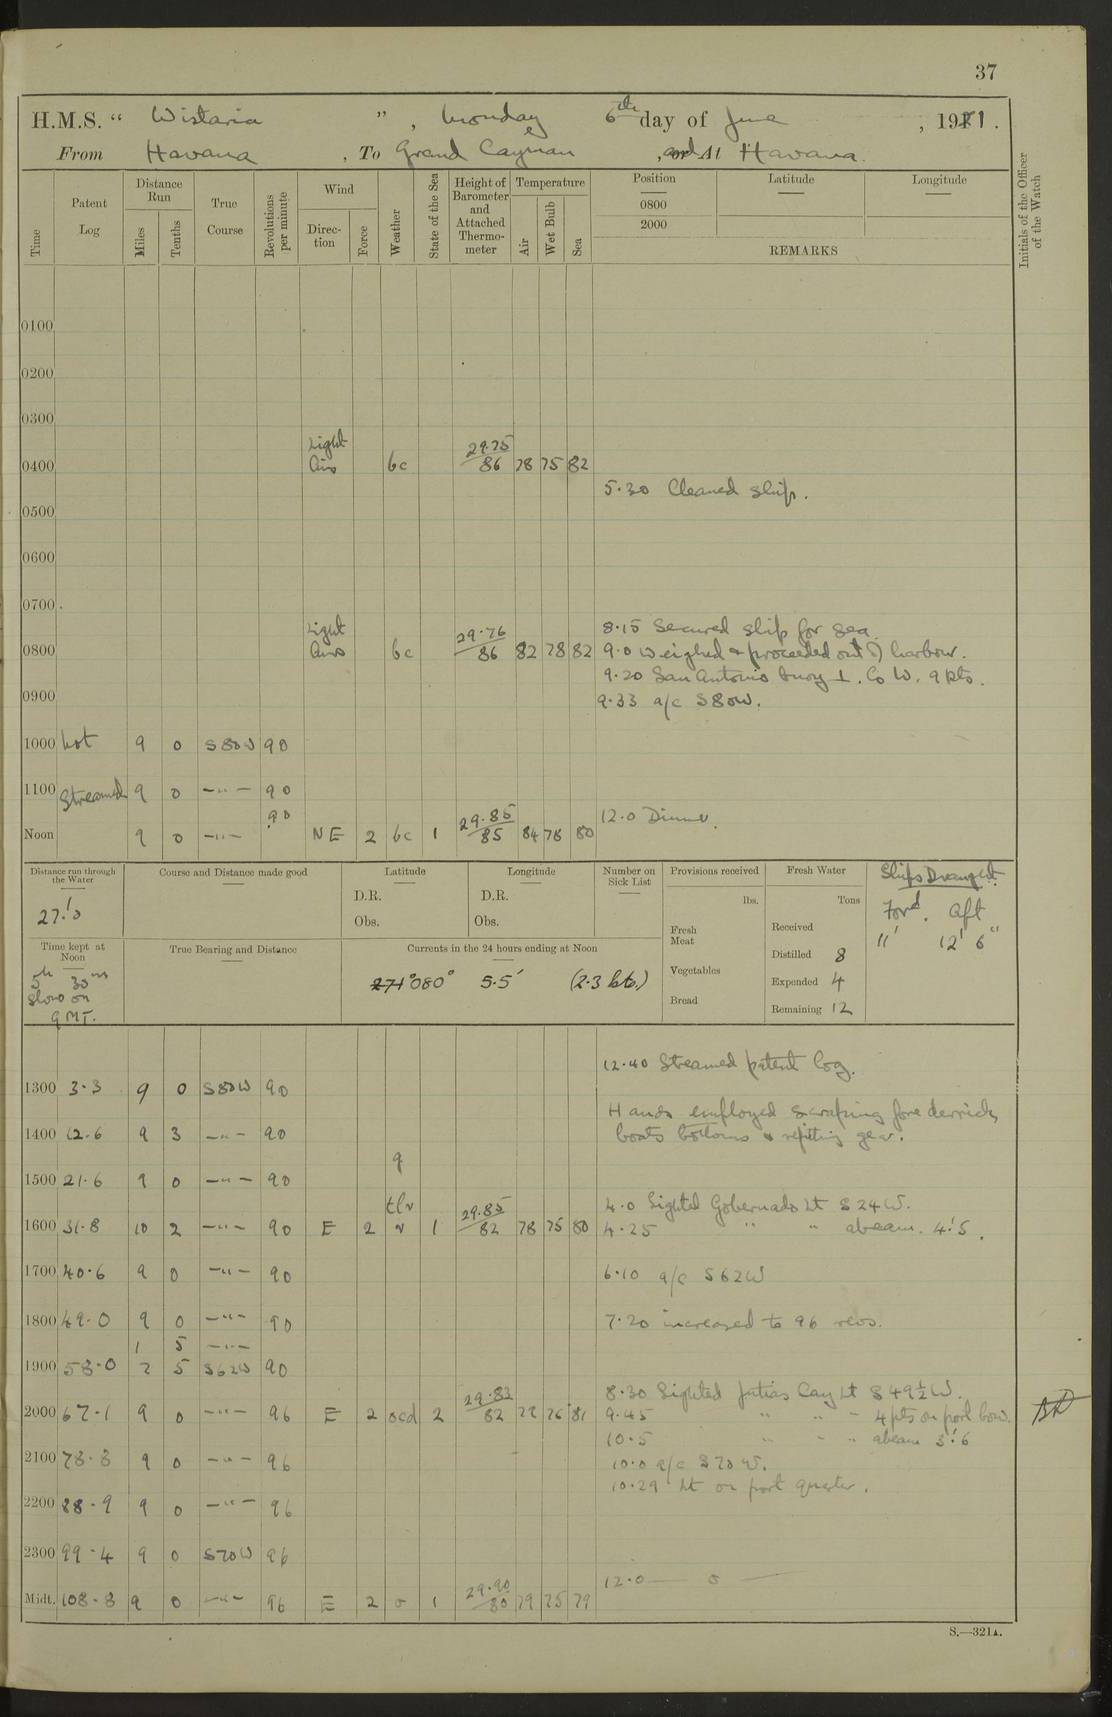 37
H.M.S. “ Wistaria ” , Monday 6th day of June , 1921 .
From Havana , To Grand Cayman , and At Havana.
Time
Patent Log
Distance Run
Miles
Tenths
True Course
Revolutions per minute
Wind
Direction
Force
Weather
State of the Sea
Height of Barometer and Attached Thermometer
Temperature
Air
Wet Bulb
Sea
Position
0800
2000
Latitude
Longitude
REMARKS
Initials of the Officer of the Watch
0100
0200
0300
0400 Light Airs bc 29.75/86 78 75 82
5.30 Cleaned ship.
0500
0600
0700
8.15 Secured ship for sea.
0800 Light Airs bc 29.76/86 82 78 82 9.0 Weighed & proceeded out of harbour.
9.20 San Antonio buoy ⊥. Co W. 9 kts.
0900 9.33 a/c S80W.
1000 Not 9 0 S80W 90
1100 Streamed 9 0 -"- 90
12.0 Dinner.
Noon 9 0 -"- 90 NE 2 bc 1 29.85/85 84 78 80
Distance run through the Water
27.'0
Course and Distance made good
Latitude
D.R.
Obs.
Longitude
D.R.
Obs.
Number on Sick List
Provisions received
lbs.
Fresh Meat
Vegetables
Bread
Fresh Water
Tons
Received
Distilled 8
Expended 4
Remaining 12
Ships Draught.
Ford. Aft
11' 12' 6"
Time kept at Noon
5h 30m slow on GMT.
True Bearing and Distance
Currents in the 24 hours ending at Noon
271° 080° 5.5' (2.3 kts.)
12.40 Streamed patent log.
1300 3.3 9 0 S80W 90
Hands employed scraping fore derrick,
1400 12.6 9 3 -"- 90 boats bottoms & refitting gear.
1500 21.6 9 0 -"- 90 q
tlr 4.0 Sighted Gobernado Lt S24W.
1600 31.8 10 2 -"- 90 E 2 r 1 29.85/82 78 75 80 4.25 " " abeam. 4.'5.
1700 40.6 9 0 -"- 90 6.10 a/c S62W
1800 49.0 9 0 -"- 90 7.20 increased to 96 revs.
1 5 -"-
1900 58.0 7 5 S62W 90
8.30 Sighted Jutias Cay Lt S49½W.
2000 67.1 9 0 -"- 96 E 2 ocd 2 29.83/82 76 81 9.45 " " - 4 pts on port bow.
10.5 " - " abeam 3.'6
2100 78.3 9 0 -"- 96 10.0 a/c S70W.
10.29 Lt on port quarter.
2200 88.9 9 0 -"- 96
2300 99.4 9 0 S70W 96
12.0 — o —
Midt. 108.8 9 0 -"- 96 E 2 o 1 29.90/80 79 75 79
S.—321A.